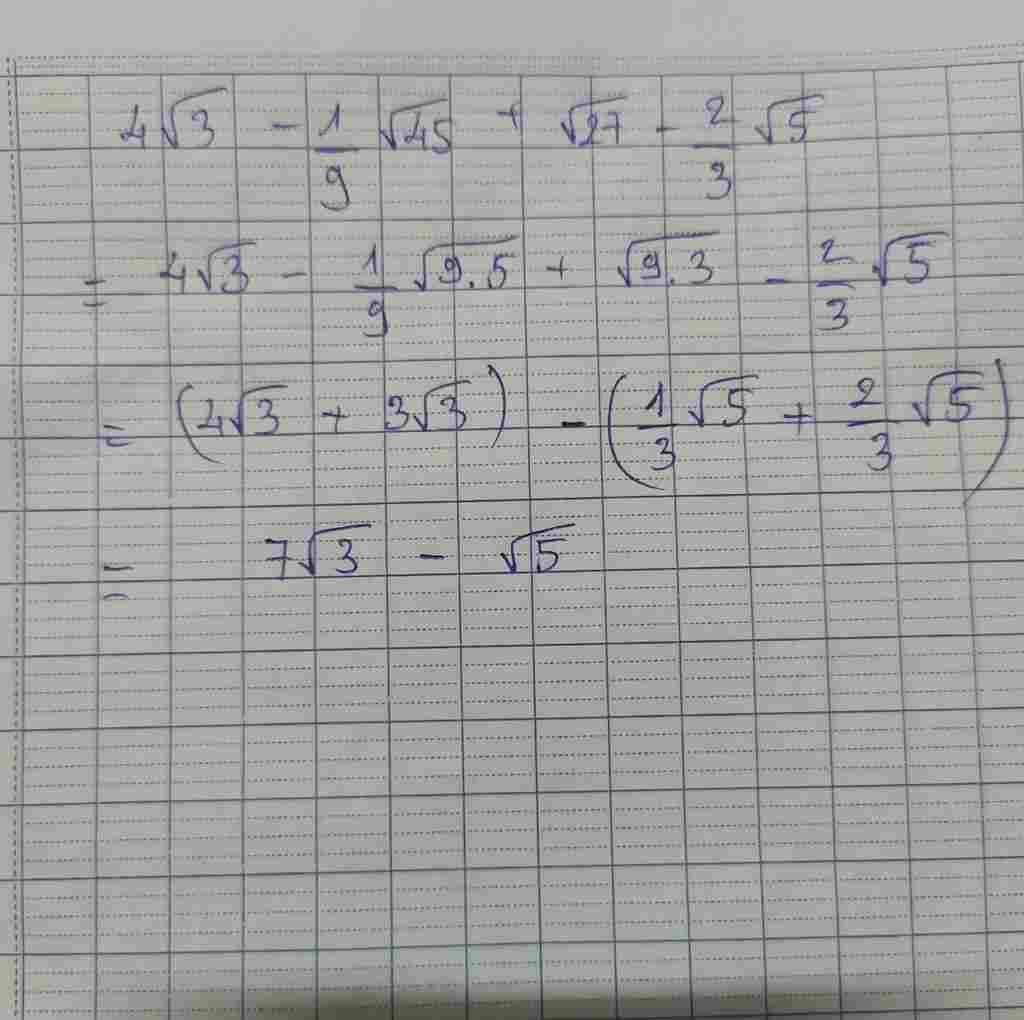 4√3 - 1/9 √45 + √27 - 2/3 √5
= 4√3 - 1/9 √9.5 + √9.3 - 2/3 √5
= (4√3 + 3√3) - (1/3 √5 + 2/3 √5)
= 7√3 - √5